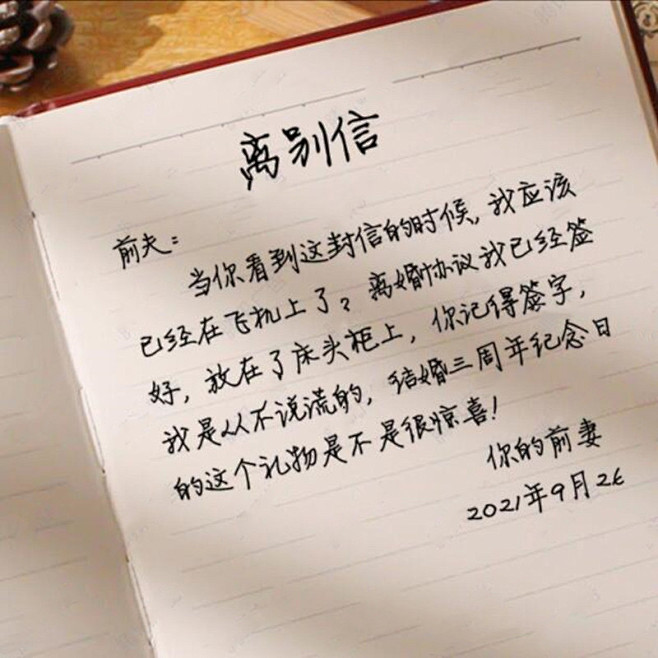 离别信
前夫：
当你看到这封信的时候，我应该
已经在飞机上了？离婚协议我已经签
好，放在了床头柜上，你记得签字，
我是从不说谎的，结婚三周年纪念日
的这个礼物是不是很惊喜！
你的前妻
2021年9月26